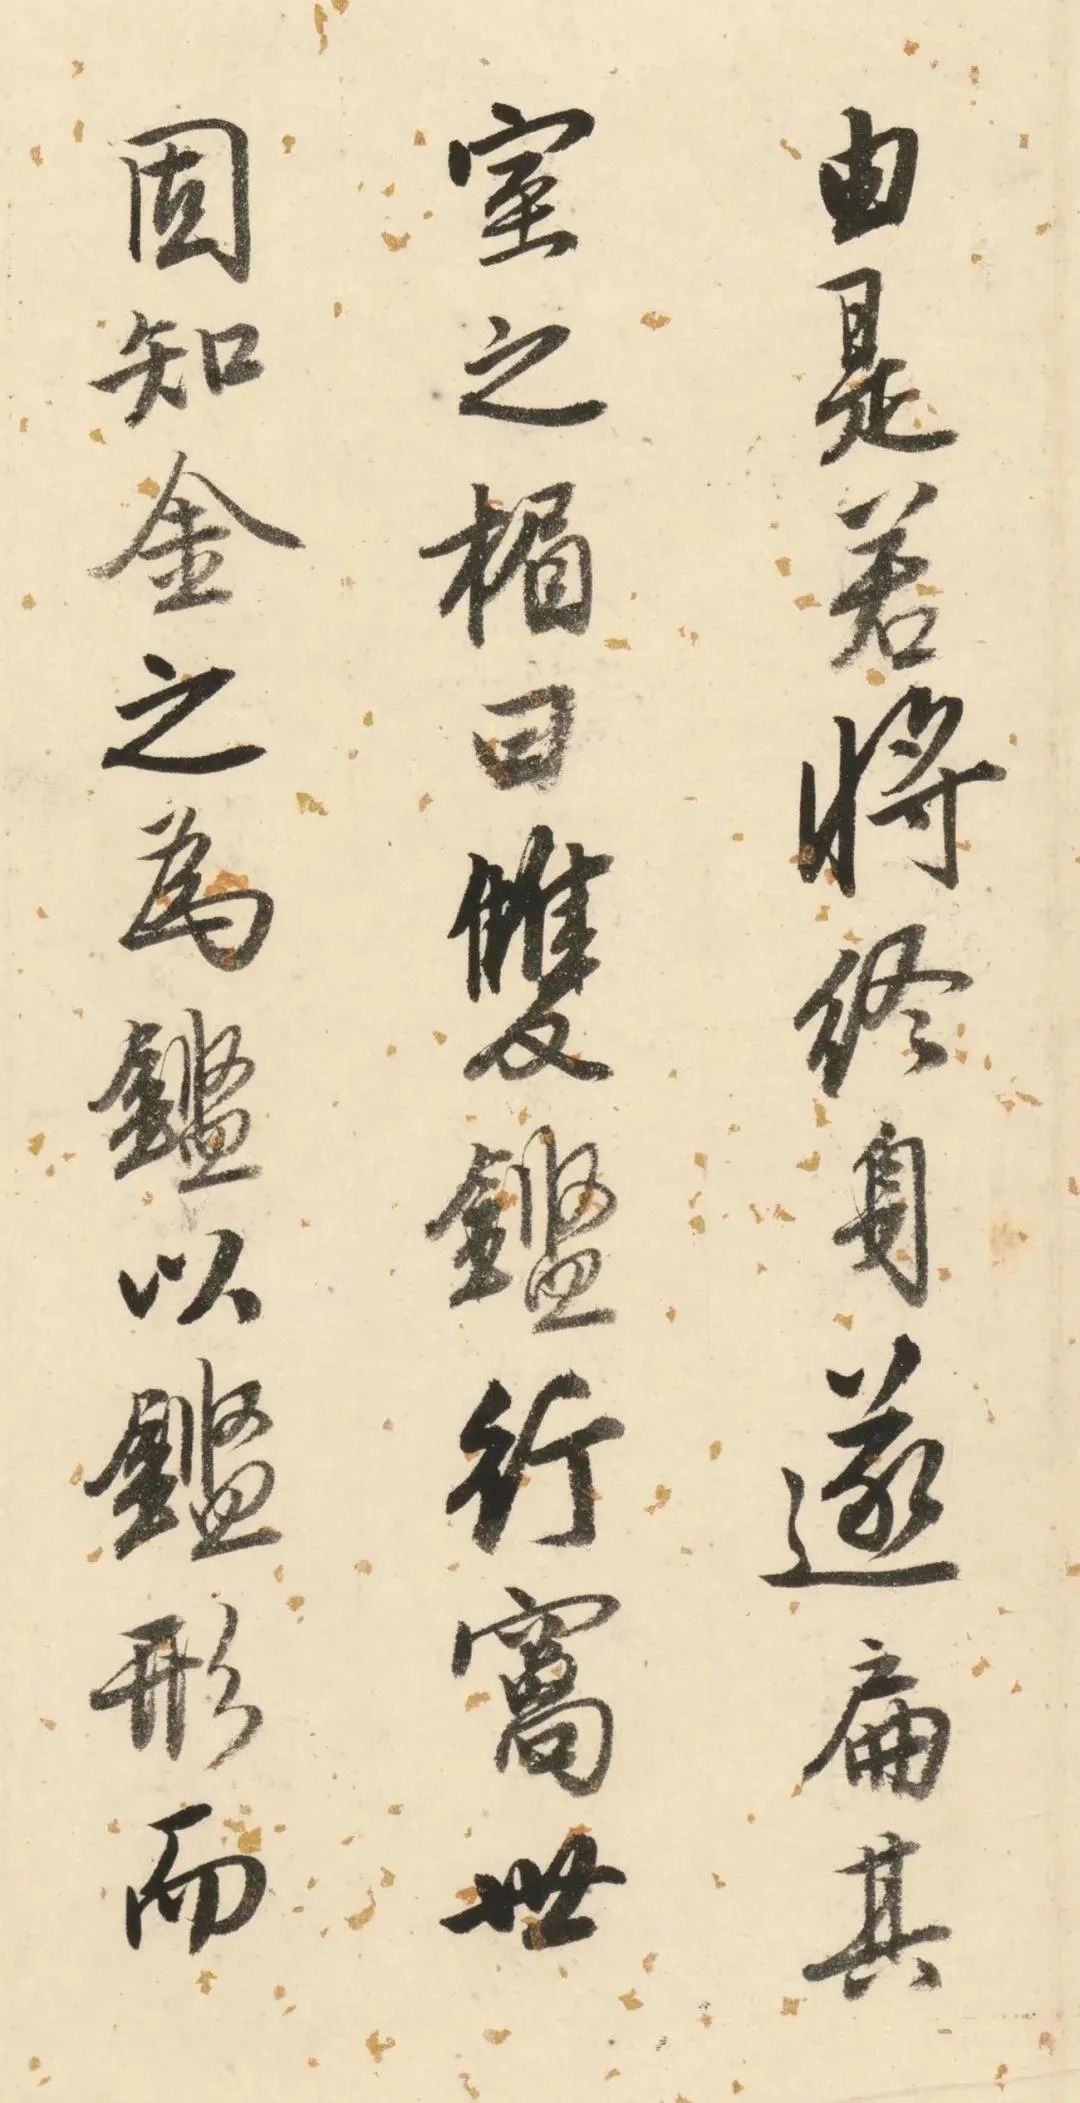 由是若將終身遂扁其
室之楣曰雙鑑行窩世
固知金之為鑑以鑑形而